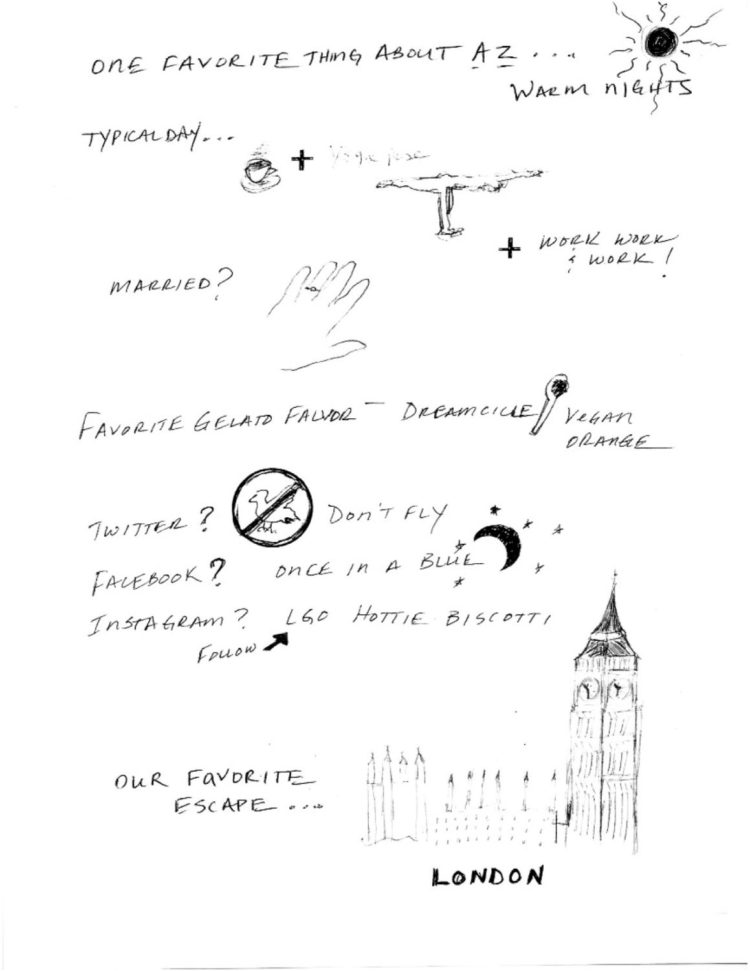 ONE FAVORITE THING ABOUT AZ ....
WARM NIGHTS
TYPICAL DAY...
+ Yoga pose
+ WORK WORK
& WORK!
MARRIED?
FAVORITE GELATO FALVOR - DREAMCICLE VEGAN
ORANGE
TWITTER? DON'T FLY
FACEBOOK? ONCE IN A BLUE
INSTAGRAM? LGO HOTTIE BISCOTTI
FOLLOW
OUR FAVORITE
ESCAPE ....
LONDON